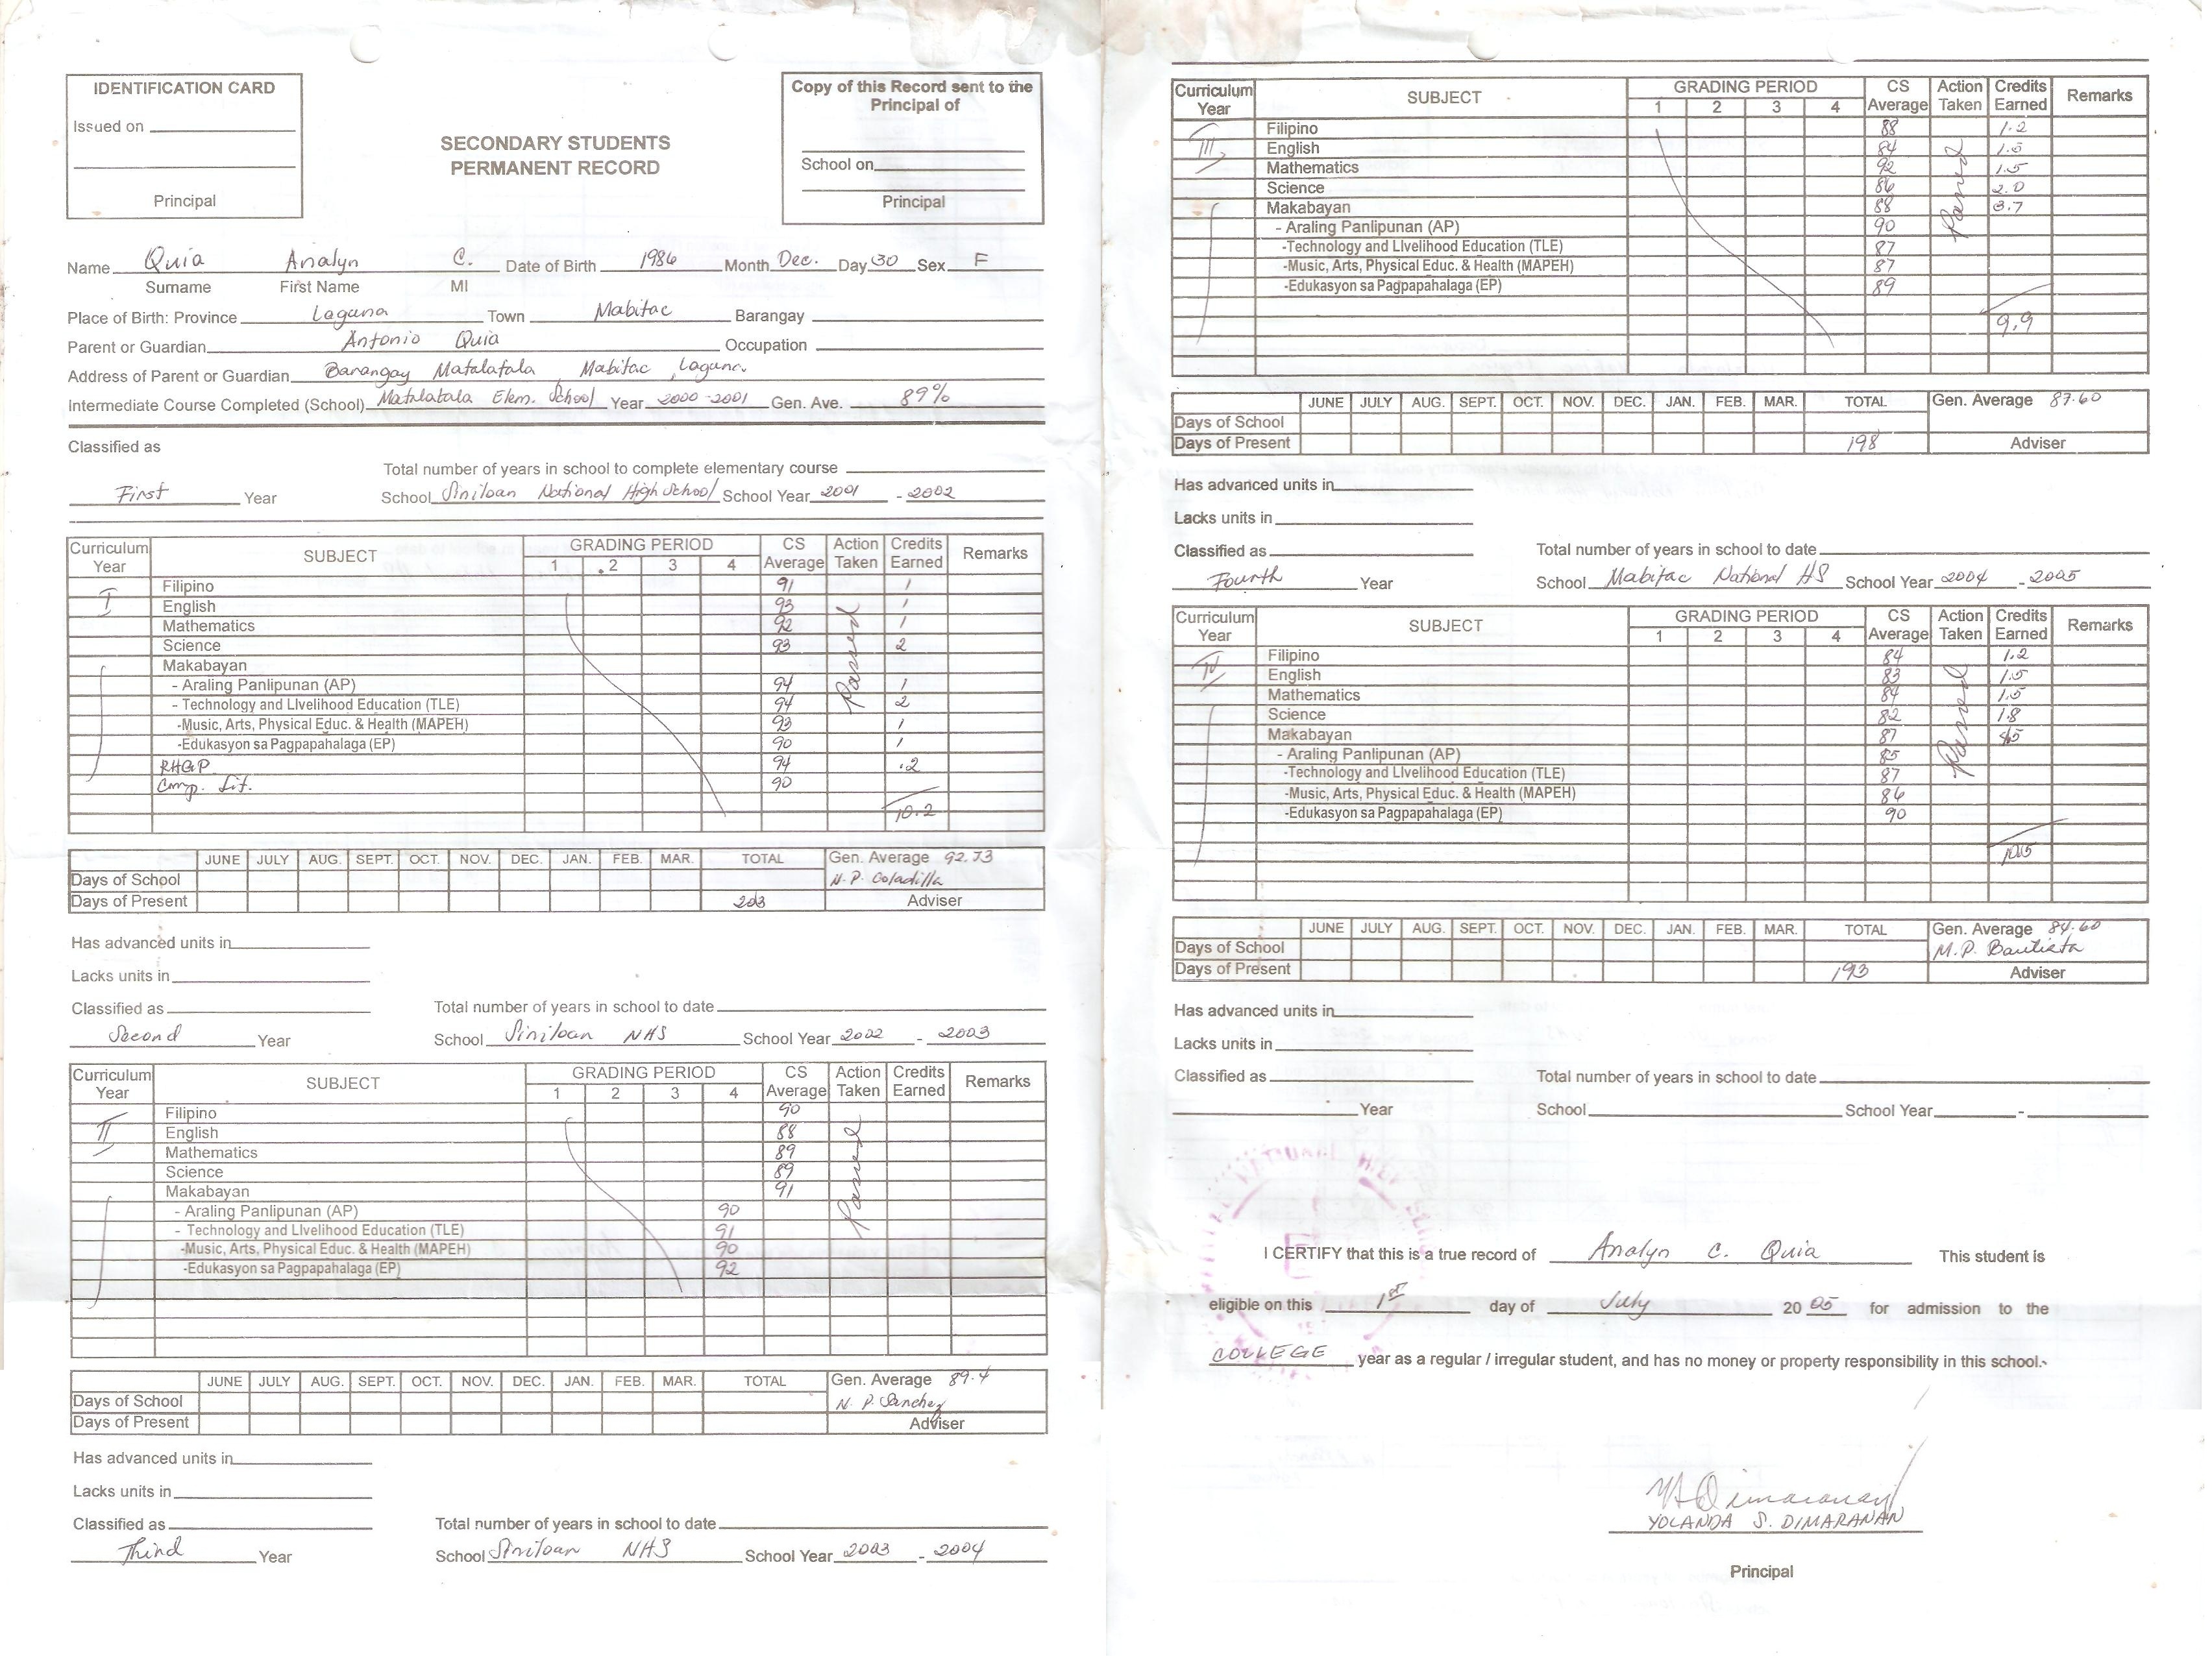 IDENTIFICATION CARD
Issued on
Principal
SECONDARY STUDENTS
PERMANENT RECORD
Copy of this Record sent to the
Principal of
School on
Principal
Name Quia Analyn C. Date of Birth 1986 Month Dec. Day 30 Sex F
Surname First Name MI
Place of Birth: Province Laguna Town Mabitac Barangay
Parent or Guardian Antonio Quia Occupation
Address of Parent or Guardian Barangay Matalatala, Mabitac, Laguna.
Intermediate Course Completed (School) Matalatala Elem. School Year 2000-2001 Gen. Ave. 89%
Classified as
Total number of years in school to complete elementary course
First Year School Siniloan National High School School Year 2001 - 2002
Curriculum Year SUBJECT GRADING PERIOD 1 2 3 4 CS Average Action Taken Credits Earned Remarks
I Filipino 91 Passed 1
English 93 1
Mathematics 92 1
Science 93 2
Makabayan
- Araling Panlipunan (AP) 94 1
- Technology and LIvelihood Education (TLE) 94 2
-Music, Arts, Physical Educ. & Health (MAPEH) 93 1
-Edukasyon sa Pagpapahalaga (EP) 90 1
RHGP 94 .2
Comp. Lit. 90
10.2
JUNE JULY AUG. SEPT. OCT. NOV. DEC. JAN. FEB. MAR. TOTAL Gen. Average 92.73
Days of School N. P. Coladilla
Days of Present 203 Adviser
Has advanced units in
Lacks units in
Classified as Total number of years in school to date
Second Year School Siniloan NHS School Year 2002 - 2003
Curriculum Year SUBJECT GRADING PERIOD 1 2 3 4 CS Average Action Taken Credits Earned Remarks
II Filipino 90 Passed
English 88
Mathematics 89
Science 89
Makabayan 91
- Araling Panlipunan (AP) 90
- Technology and LIvelihood Education (TLE) 91
-Music, Arts, Physical Educ. & Health (MAPEH) 90
-Edukasyon sa Pagpapahalaga (EP) 92
JUNE JULY AUG. SEPT. OCT. NOV. DEC. JAN. FEB. MAR. TOTAL Gen. Average 89.4
Days of School N. P. Sanchez
Days of Present Adviser
Has advanced units in
Lacks units in
Classified as Total number of years in school to date
Third Year School Siniloan NHS School Year 2003 - 2004
Curriculum Year SUBJECT GRADING PERIOD 1 2 3 4 CS Average Action Taken Credits Earned Remarks
III Filipino 88 Passed 1.2
English 84 1.5
Mathematics 92 1.5
Science 86 2.0
Makabayan 88 3.7
- Araling Panlipunan (AP) 90
-Technology and LIvelihood Education (TLE) 87
-Music, Arts, Physical Educ. & Health (MAPEH) 87
-Edukasyon sa Pagpapahalaga (EP) 89
9.9
JUNE JULY AUG. SEPT. OCT. NOV. DEC. JAN. FEB. MAR. TOTAL Gen. Average 87.60
Days of School
Days of Present 198 Adviser
Has advanced units in
Lacks units in
Classified as Total number of years in school to date
Fourth Year School Mabitac National HS School Year 2004 - 2005
Curriculum Year SUBJECT GRADING PERIOD 1 2 3 4 CS Average Action Taken Credits Earned Remarks
IV Filipino 84 Passed 1.2
English 83 1.5
Mathematics 84 1.5
Science 82 1.8
Makabayan 87 4.5
- Araling Panlipunan (AP) 85
-Technology and LIvelihood Education (TLE) 87
-Music, Arts, Physical Educ. & Health (MAPEH) 86
-Edukasyon sa Pagpapahalaga (EP) 90
10.5
JUNE JULY AUG. SEPT. OCT. NOV. DEC. JAN. FEB. MAR. TOTAL Gen. Average 84.60
Days of School M. P. Bautista
Days of Present 193 Adviser
Has advanced units in
Lacks units in
Classified as Total number of years in school to date
Year School School Year -
I CERTIFY that this is a true record of Analyn C. Quia This student is
eligible on this 1st day of July 20 05 for admission to the
COLLEGE year as a regular / irregular student, and has no money or property responsibility in this school.
YOLANDA S. DIMARANAN
Principal